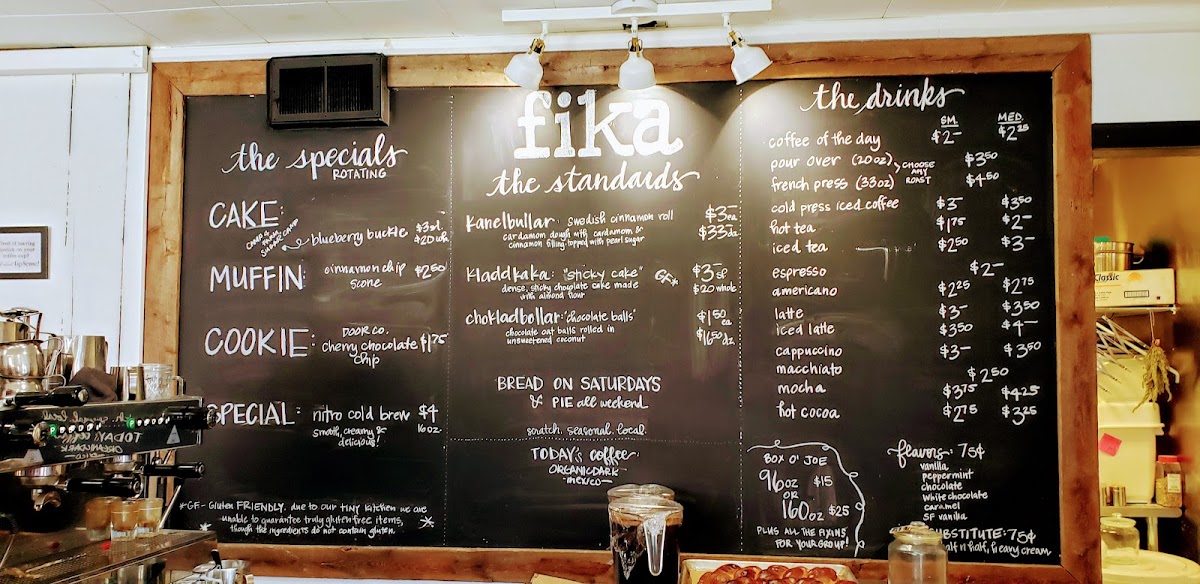 the specials
ROTATING
CAKE:
blueberry buckle $3 sl.
$20 wh
MUFFIN: cinnamon chip $2.50
scone
COOKIE: DOOR CO.
cherry chocolate $1.75
chip
SPECIAL: nitro cold brew $4
smooth, creamy & 16oz
delicious!
*GF - Gluten FRIENDLY. due to our TINY kitchen we are
unable to guarantee truly gluten free items,
though the ingredients do not contain gluten.
fika
the standards
Kanelbullar: swedish cinnamon roll $3- ea
cardamom dough with cardamom & $33 dz
cinnamon filling topped with pearl sugar
kladdkaka: "sticky cake" GF* $3- sl
dense, sticky chocolate cake made $20 whole
with almond flour
chokladbollar: 'chocolate balls' $1.50 ea
chocolate oat balls rolled in $16.50 dz
unsweetened coconut
BREAD ON SATURDAYS
& PIE all weekend
scratch. seasonal. local.
TODAY'S coffee
ORGANIC DARK
-mexico-
the drinks
SM. MED.
coffee of the day $2- $2.25
pour over (20oz) CHOOSE ANY ROAST $3.50
french press (33oz) $4.50
cold press iced coffee $3- $3.50
hot tea $1.75 $2-
iced tea $2.50 $3-
espresso $2-
americano $2.25 $2.75
latte $3- $3.50
iced latte $3.50 $4-
cappuccino $3- $3.50
macchiato $2.50
mocha $3.75 $4.25
hot cocoa $2.75 $3.25
BOX O' JOE
96oz $15
OR
160oz $25
PLUS ALL THE FIXINS
FOR YOUR GROUP!
flavors: 75¢
vanilla
peppermint
chocolate
white chocolate
caramel
SF vanilla
SUBSTITUTE: 75¢
half n half, heavy cream
Classic
TODAY'S